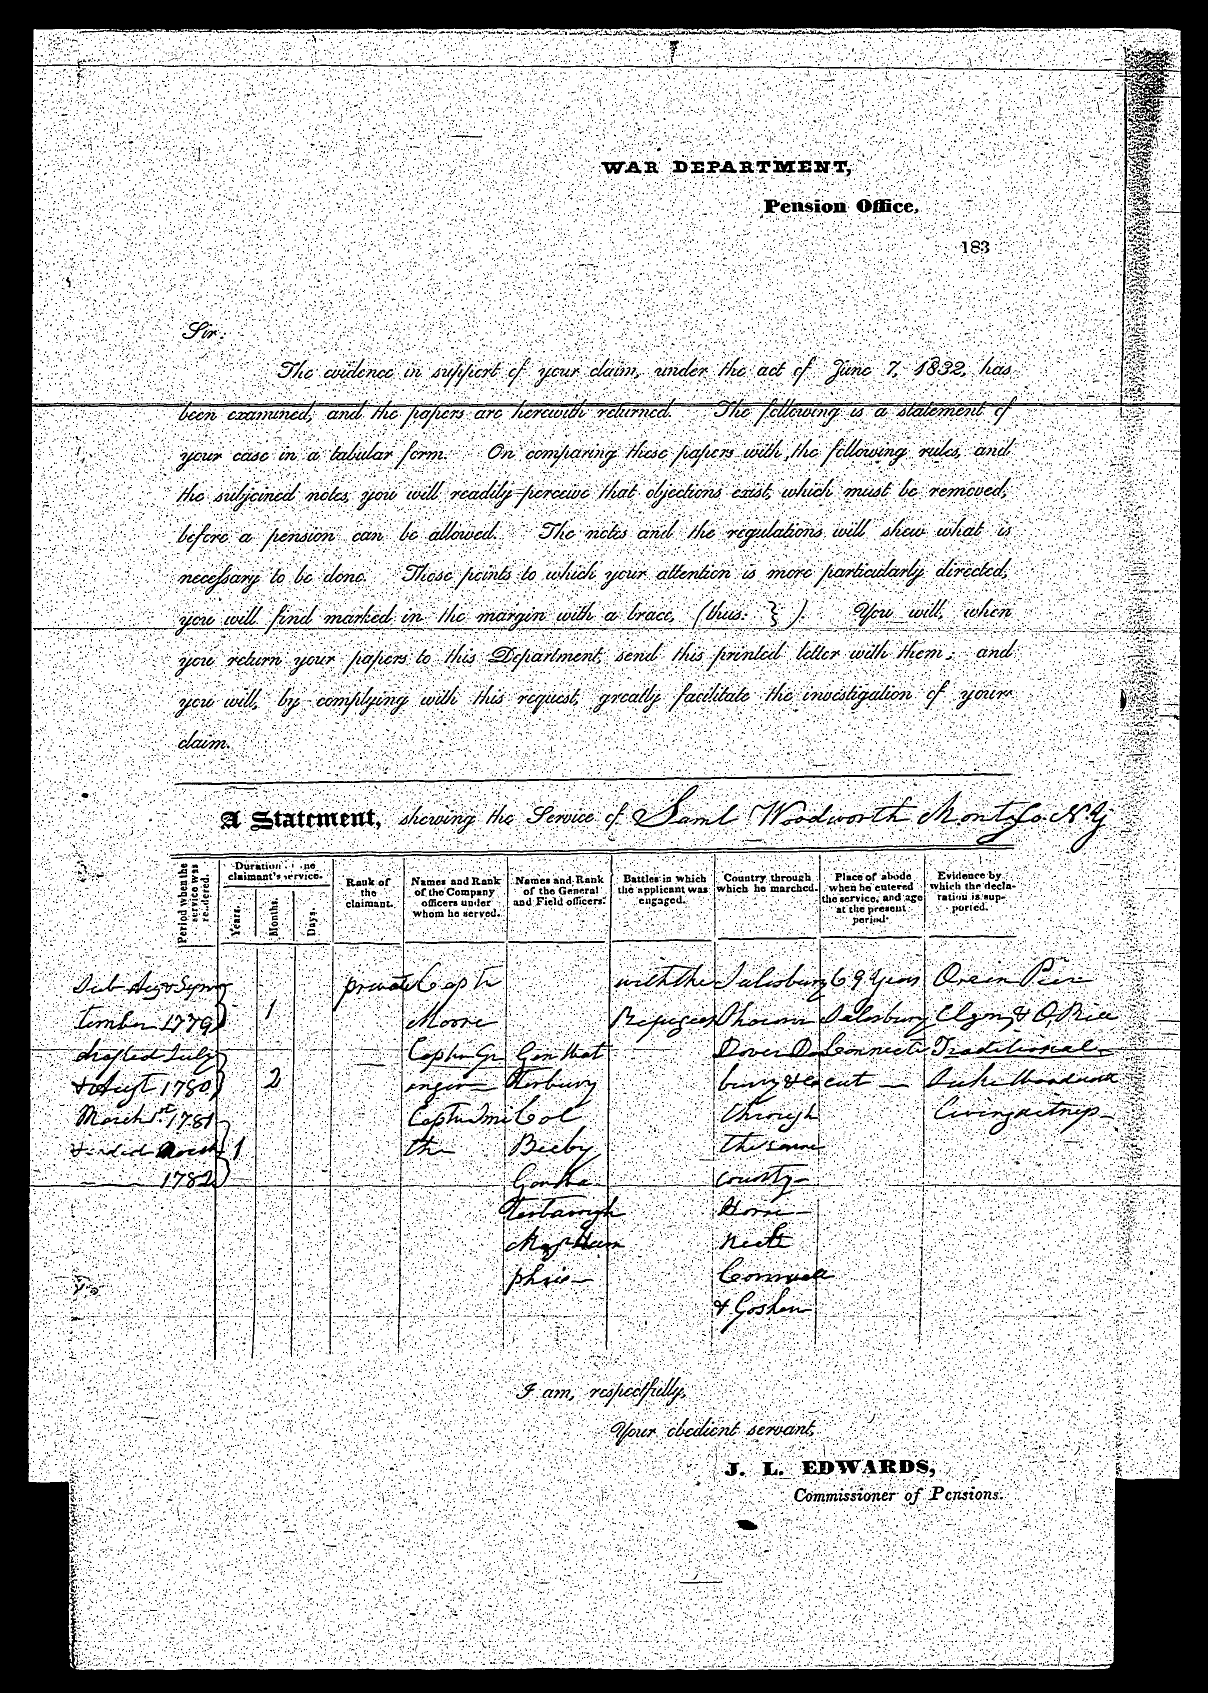 WAR DEPARTMENT,
Pension Office,
183
Sir:
The evidence in support of your claim, under the act of June 7, 1832, has
been examined, and the papers are herewith returned. The following is a statement of
your case in a tabular form. On comparing these papers with the following rules, and
the subjoined notes, you will readily perceive that objections exist, which must be removed,
before a pension can be allowed. The notes and the regulations will shew what is
necessary to be done. Those points to which your attention is more particularly directed,
you will find marked in the margin with a brace, (thus: } ). You will, when
you return your papers to this Department, send this printed letter with them; and
you will, by complying with this request, greatly facilitate the investigation of your
claim.
A Statement, shewing the Service of Saml Woodworth Montg Co. N.Y
Period when the service was rendered.
Duration of the claimant's service.
Years.
Months.
Days.
Rank of the claimant.
Names and Rank of the Company officers under whom he served.
Names and Rank of the General and Field officers.
Battles in which the applicant was engaged.
Country through which he marched.
Place of abode when he entered the service, and age at the present period.
Evidence by which the declaration is supported.
private Capt with the Salisbury 69 Years Orin
tember 1779 1 Moore Refugees Salisbury & O. Rice
drafted July Capt Gr Gen Wat Dover Connecti Traditional
& Augt 1780 2 anger terbury bury & cut Woodworth
March 1st 1781 Capt Smi Col through
& ended 1 th Beeby the same
1782 county
Horse
Maj Hum Neck
phris Cornwall
& Goshen
I am, respectfully,
Your obedient servant,
J. L. EDWARDS,
Commissioner of Pensions.